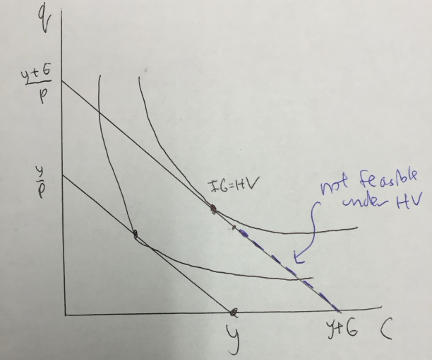 q
y+G
p
y
p
IG=HV
not feasible
under HV
y
y+G
C